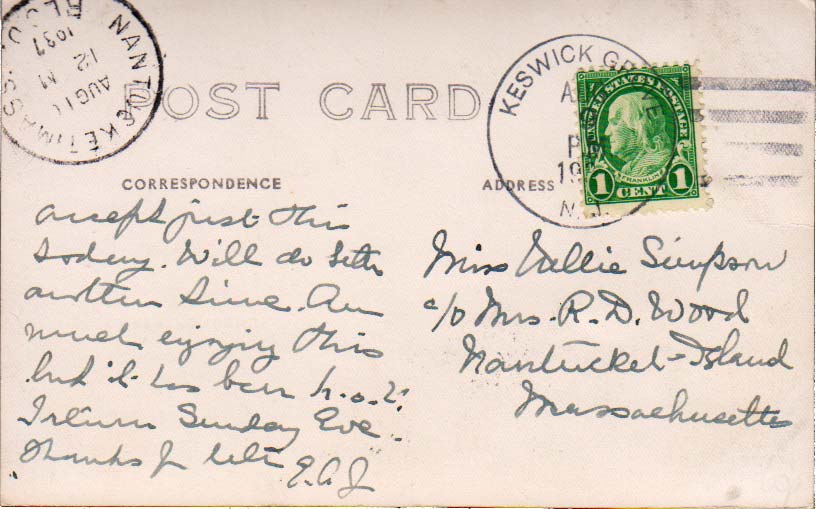 NANTUCKET, MASS.
AUG 1
12 M
1937
REC'D.
POST CARD
KESWICK GROVE
P M
19
N.J.
UNITED STATES POSTAGE
FRANKLIN
1 CENT 1
CORRESPONDENCE
ADDRESS
accept just this
today. Will do better
another time. Am
much enjoying this
but it has been h.o.t.
I return Sunday Eve.
Thanks for letter
E.A.J.
Miss Vallie Simpson
c/o Mrs. R. D. Wood
Nantucket-Island
Massachusetts